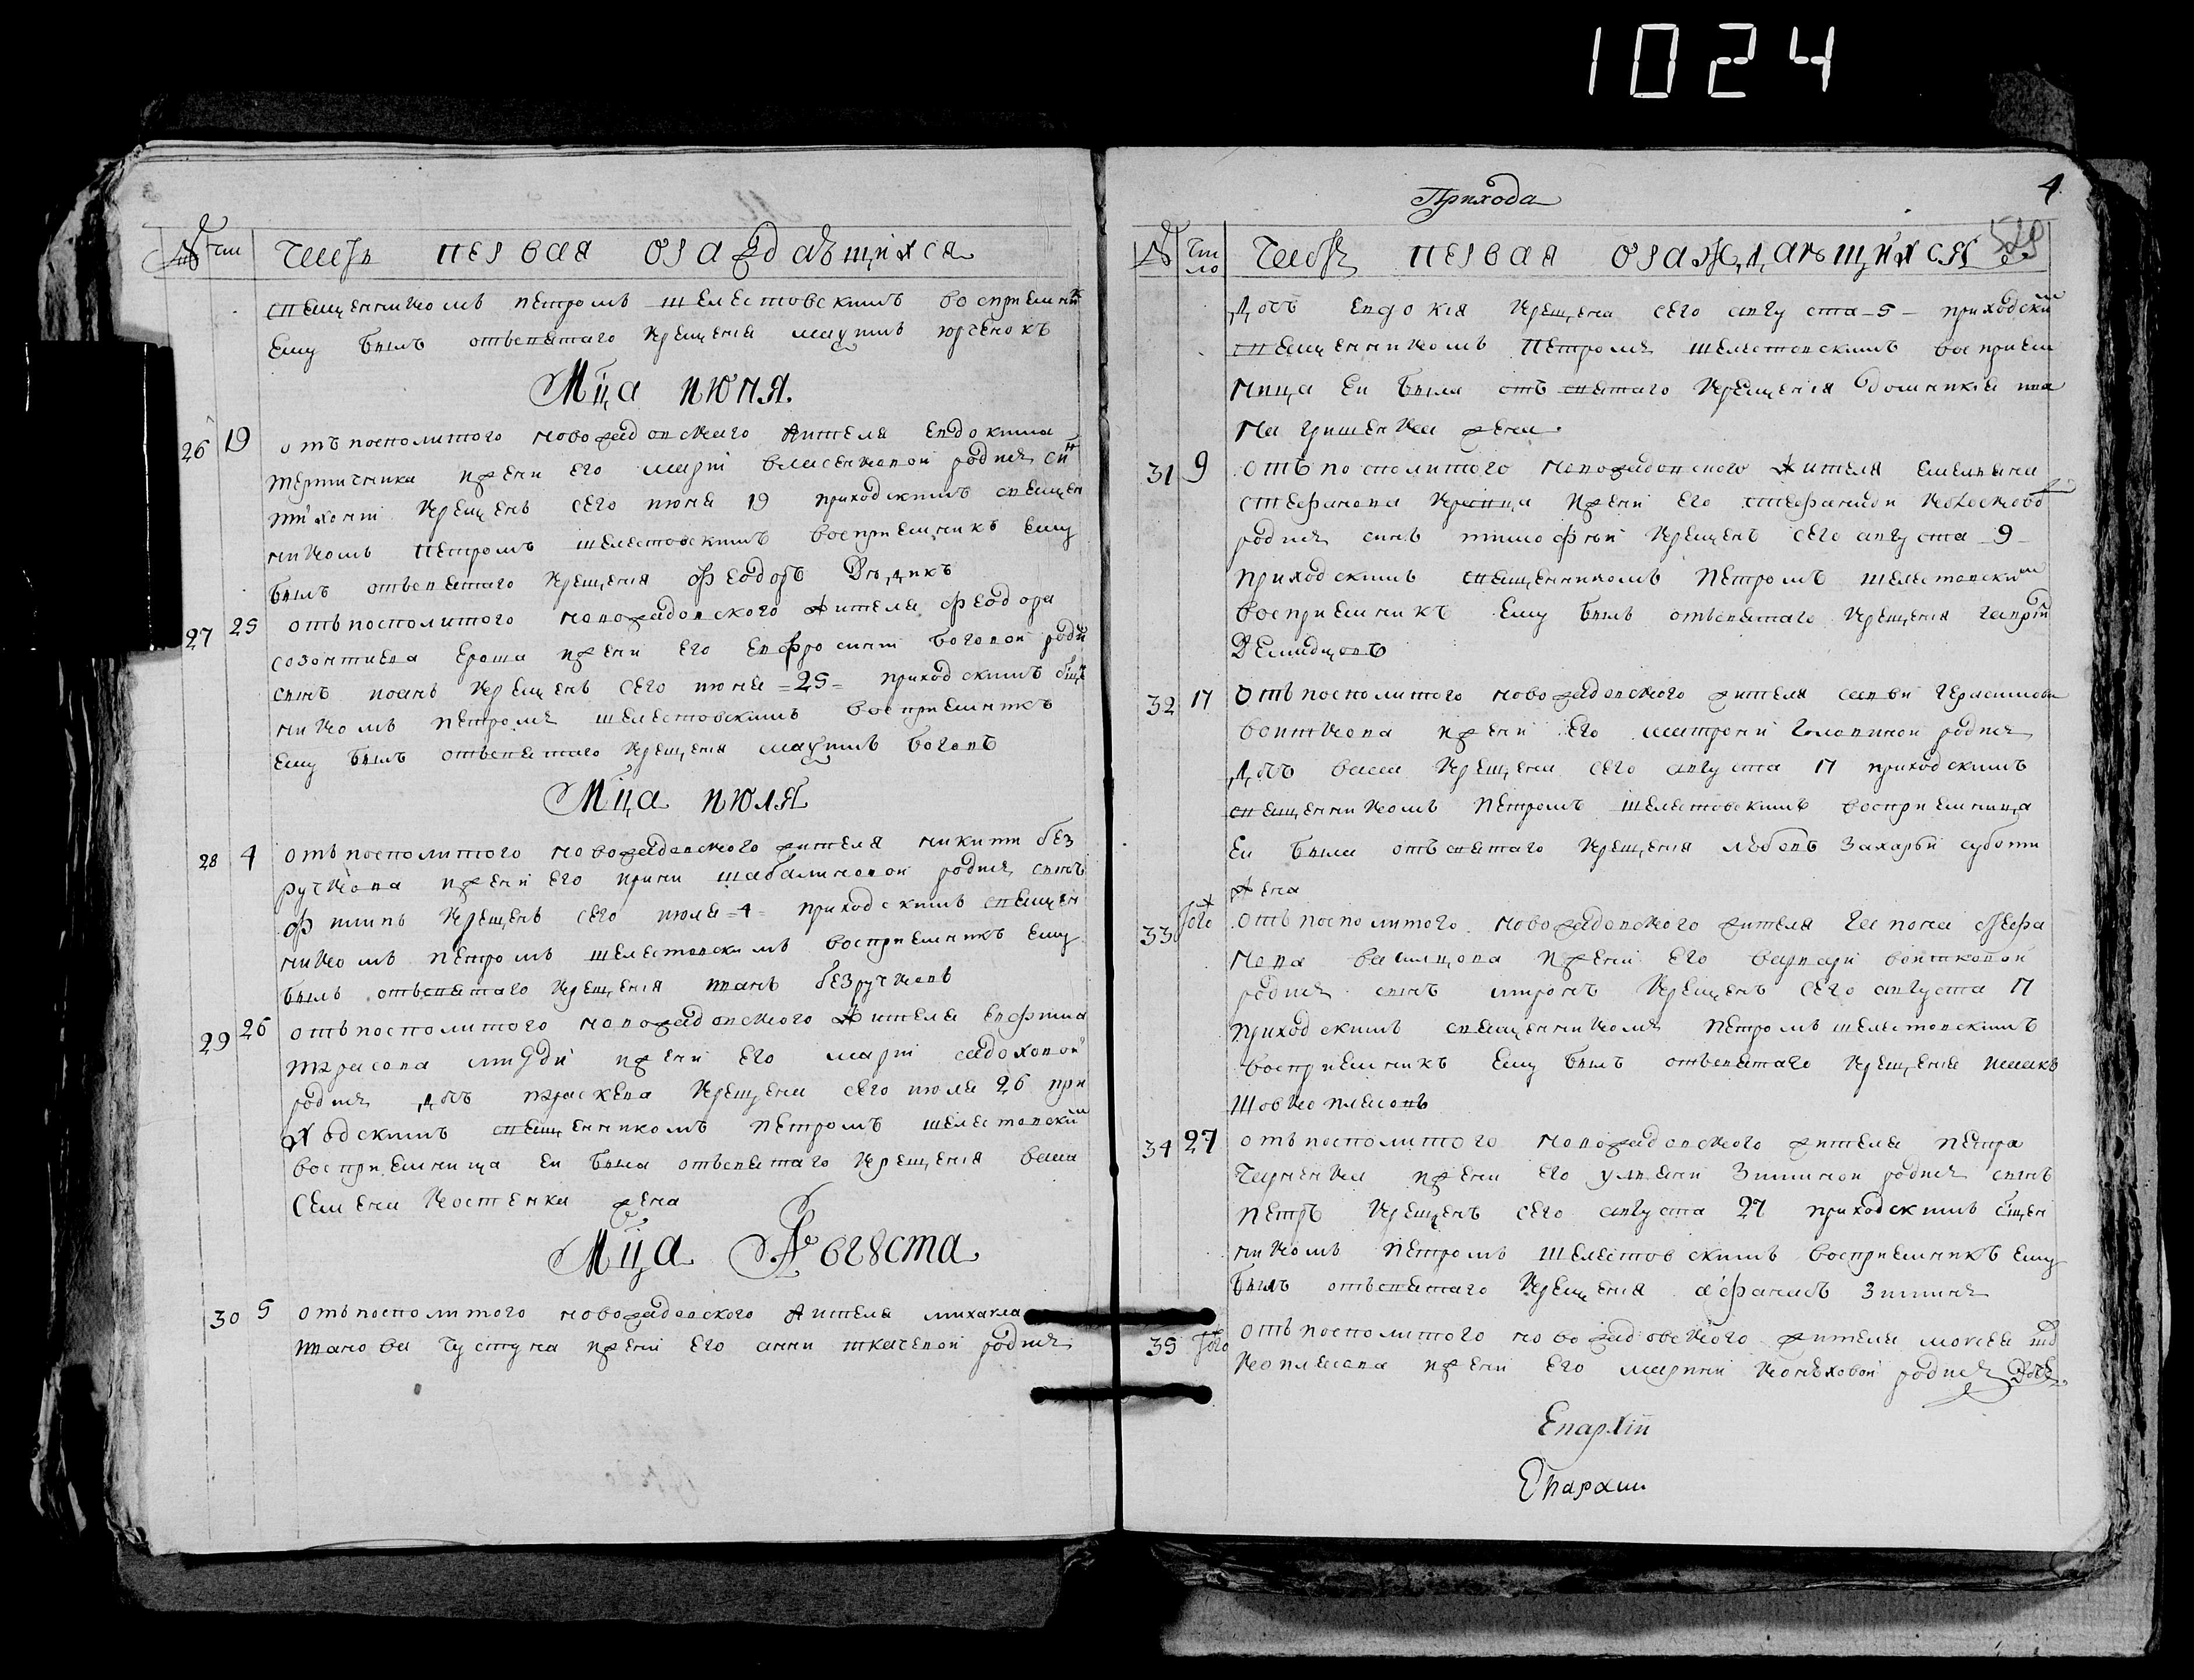 1024
№ Чи Часть первая ораждающихся
священникомъ петромъ шелестовскимъ восприемникъ
ему былъ отъсвятаго крещения маѯимъ юрченокъ
Мца июня.
26 19 отъпосполитого новозадовского жителя евдокима
тертичника изжени его марiи власенковой родися синъ
тихонiй крещенъ сего июня 19 приходскимъ священ
никомъ петромъ шелестовскимъ восприемникъ ему
былъ отъсвятаго крещения феодоръ
27 25 отъпосполитого новозадовского жителя феодора
созонтиева ероша изжени его ефросинiи боговой роди
синъ иоанъ крещенъ сего июня =25= приходскимъ сщен
никомъ петромъ шелестовскимъ восприемникъ
ему былъ отъсвятаго крещения маѯимъ боговъ
Мца июля
28 4 отъпосполитого новозадовского жителя никити без
ручкова изжени его ирини шабалиновой родися синъ
филипъ крещенъ сего июля =4= приходскимъ священ
никомъ петромъ шелестовскимъ восприемникъ ему
былъ отъсвятаго крещения иванъ безручковъ
29 26 отъпосполитого новозадовского жителя ефима
тарасова изжени его марiи садоховой
родися дочь параскева крещена сего июля 26 при
ходскимъ священникомъ петромъ шелестовскимъ
восприемница ей была отъсвятаго крещения
семена костенка жена
Мца Августа
30 5 отъпосполитого новозадовского жителя михаила
иванова чустуна изжени его анни ткачевой родися
Прихода 4
№ Число Часть первая ораждающихся 529
дочь евдокiя крещена сего августа -5- приходским
священникомъ петромъ шелестовскимъ восприем
ница ей была отъ святаго крещения домникiя ива
на гришенка жена
31 9 отъпосполитого новозадовского жителя емелияна
стефанова изжени его стефаниди
родися синъ тимофѣй крещенъ сего августа -9-
приходскимъ священникомъ петромъ шелестовским
восприемникъ ему былъ отъсвятаго крещения гаврiил
Демидцовъ
32 17 отъпосполитого новозадовского жителя сави герасимова
воиткова изжени его матрони головиной родися
дочь васса крещена сего августа 17 приходскимъ
священникомъ петромъ шелестовскимъ восприемница
ей была отъсвятаго крещения любовъ захарiи суботи
жена
33 Того ж отъпосполитого новозадовского жителя гапона стефа
нова изжени его варвари воитковой
родися синъ миронъ крещенъ сего августа 17
приходскимъ священникомъ петромъ шелестовскимъ
восприемникъ ему былъ отъсвятаго крещения исаакъ
шовкоплясовъ
34 27 отъпосполитого новозадовского жителя петра
изжени его улиянiи зиминой родися синъ
петръ крещенъ сего августа 27 приходскимъ сщен
никомъ петромъ шелестовскимъ восприемникъ ему
былъ отъсвятаго крещения афанасъ зиминъ
35 Того ж отъпосполитого новозадовского жителя моисея шов
коплясова изжени его марини конѣховой родися дочъ
Епархiи
Епархии